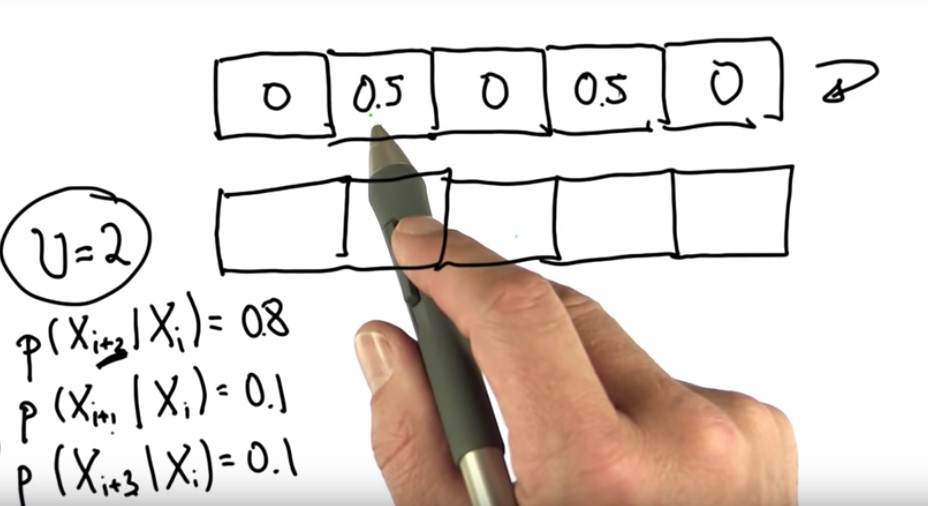 0 0.5 0 0.5 0
U=2
p(X_{i+2}|X_i)=0.8
p(X_{i+1}|X_i)=0.1
p(X_{i+3}|X_i)=0.1